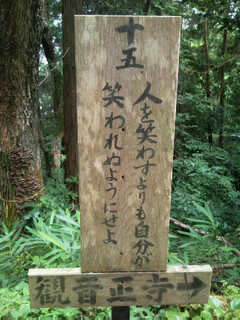 十五、
人を笑わすよりも自分が
笑われぬようにせよ
観音正寺